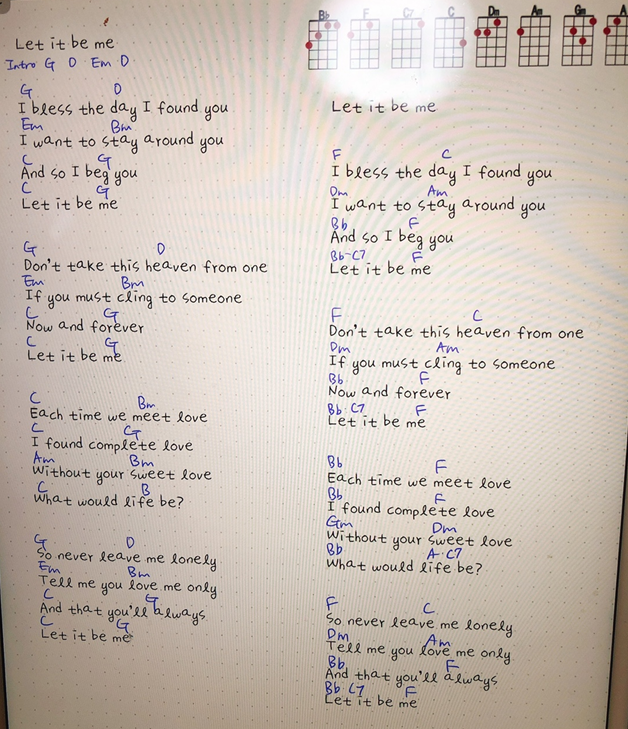 Let it be me
Intro G D Em D
G D
I bless the day I found you
Em Bm
I want to stay around you
C G
And so I beg you
C G
Let it be me
G D
Don't take this heaven from one
Em Bm
If you must cling to someone
C G
Now and forever
C G
Let it be me
C Bm
Each time we meet love
C G
I found complete love
Am Bm
Without your sweet love
C B
What would life be?
G D
So never leave me lonely
Em Bm
Tell me you love me only
C G
And that you'll always
C G
Let it be me
Bb F C7 C Dm Am Gm A
Let it be me
F C
I bless the day I found you
Dm Am
I want to stay around you
Bb F
And so I beg you
Bb-C7 F
Let it be me
F C
Don't take this heaven from one
Dm Am
If you must cling to someone
Bb F
Now and forever
Bb·C7 F
Let it be me
Bb F
Each time we meet love
Bb F
I found complete love
Gm Dm
Without your sweet love
Bb A·C7
What would life be?
F C
So never leave me lonely
Dm Am
Tell me you love me only
Bb F
And that you'll always
Bb·C7 F
Let it be me